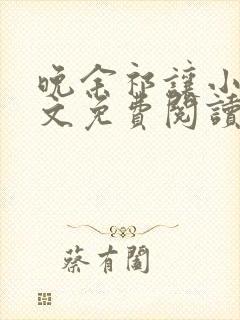 晚余祁讓小
文免費閱讀
蔡有閣